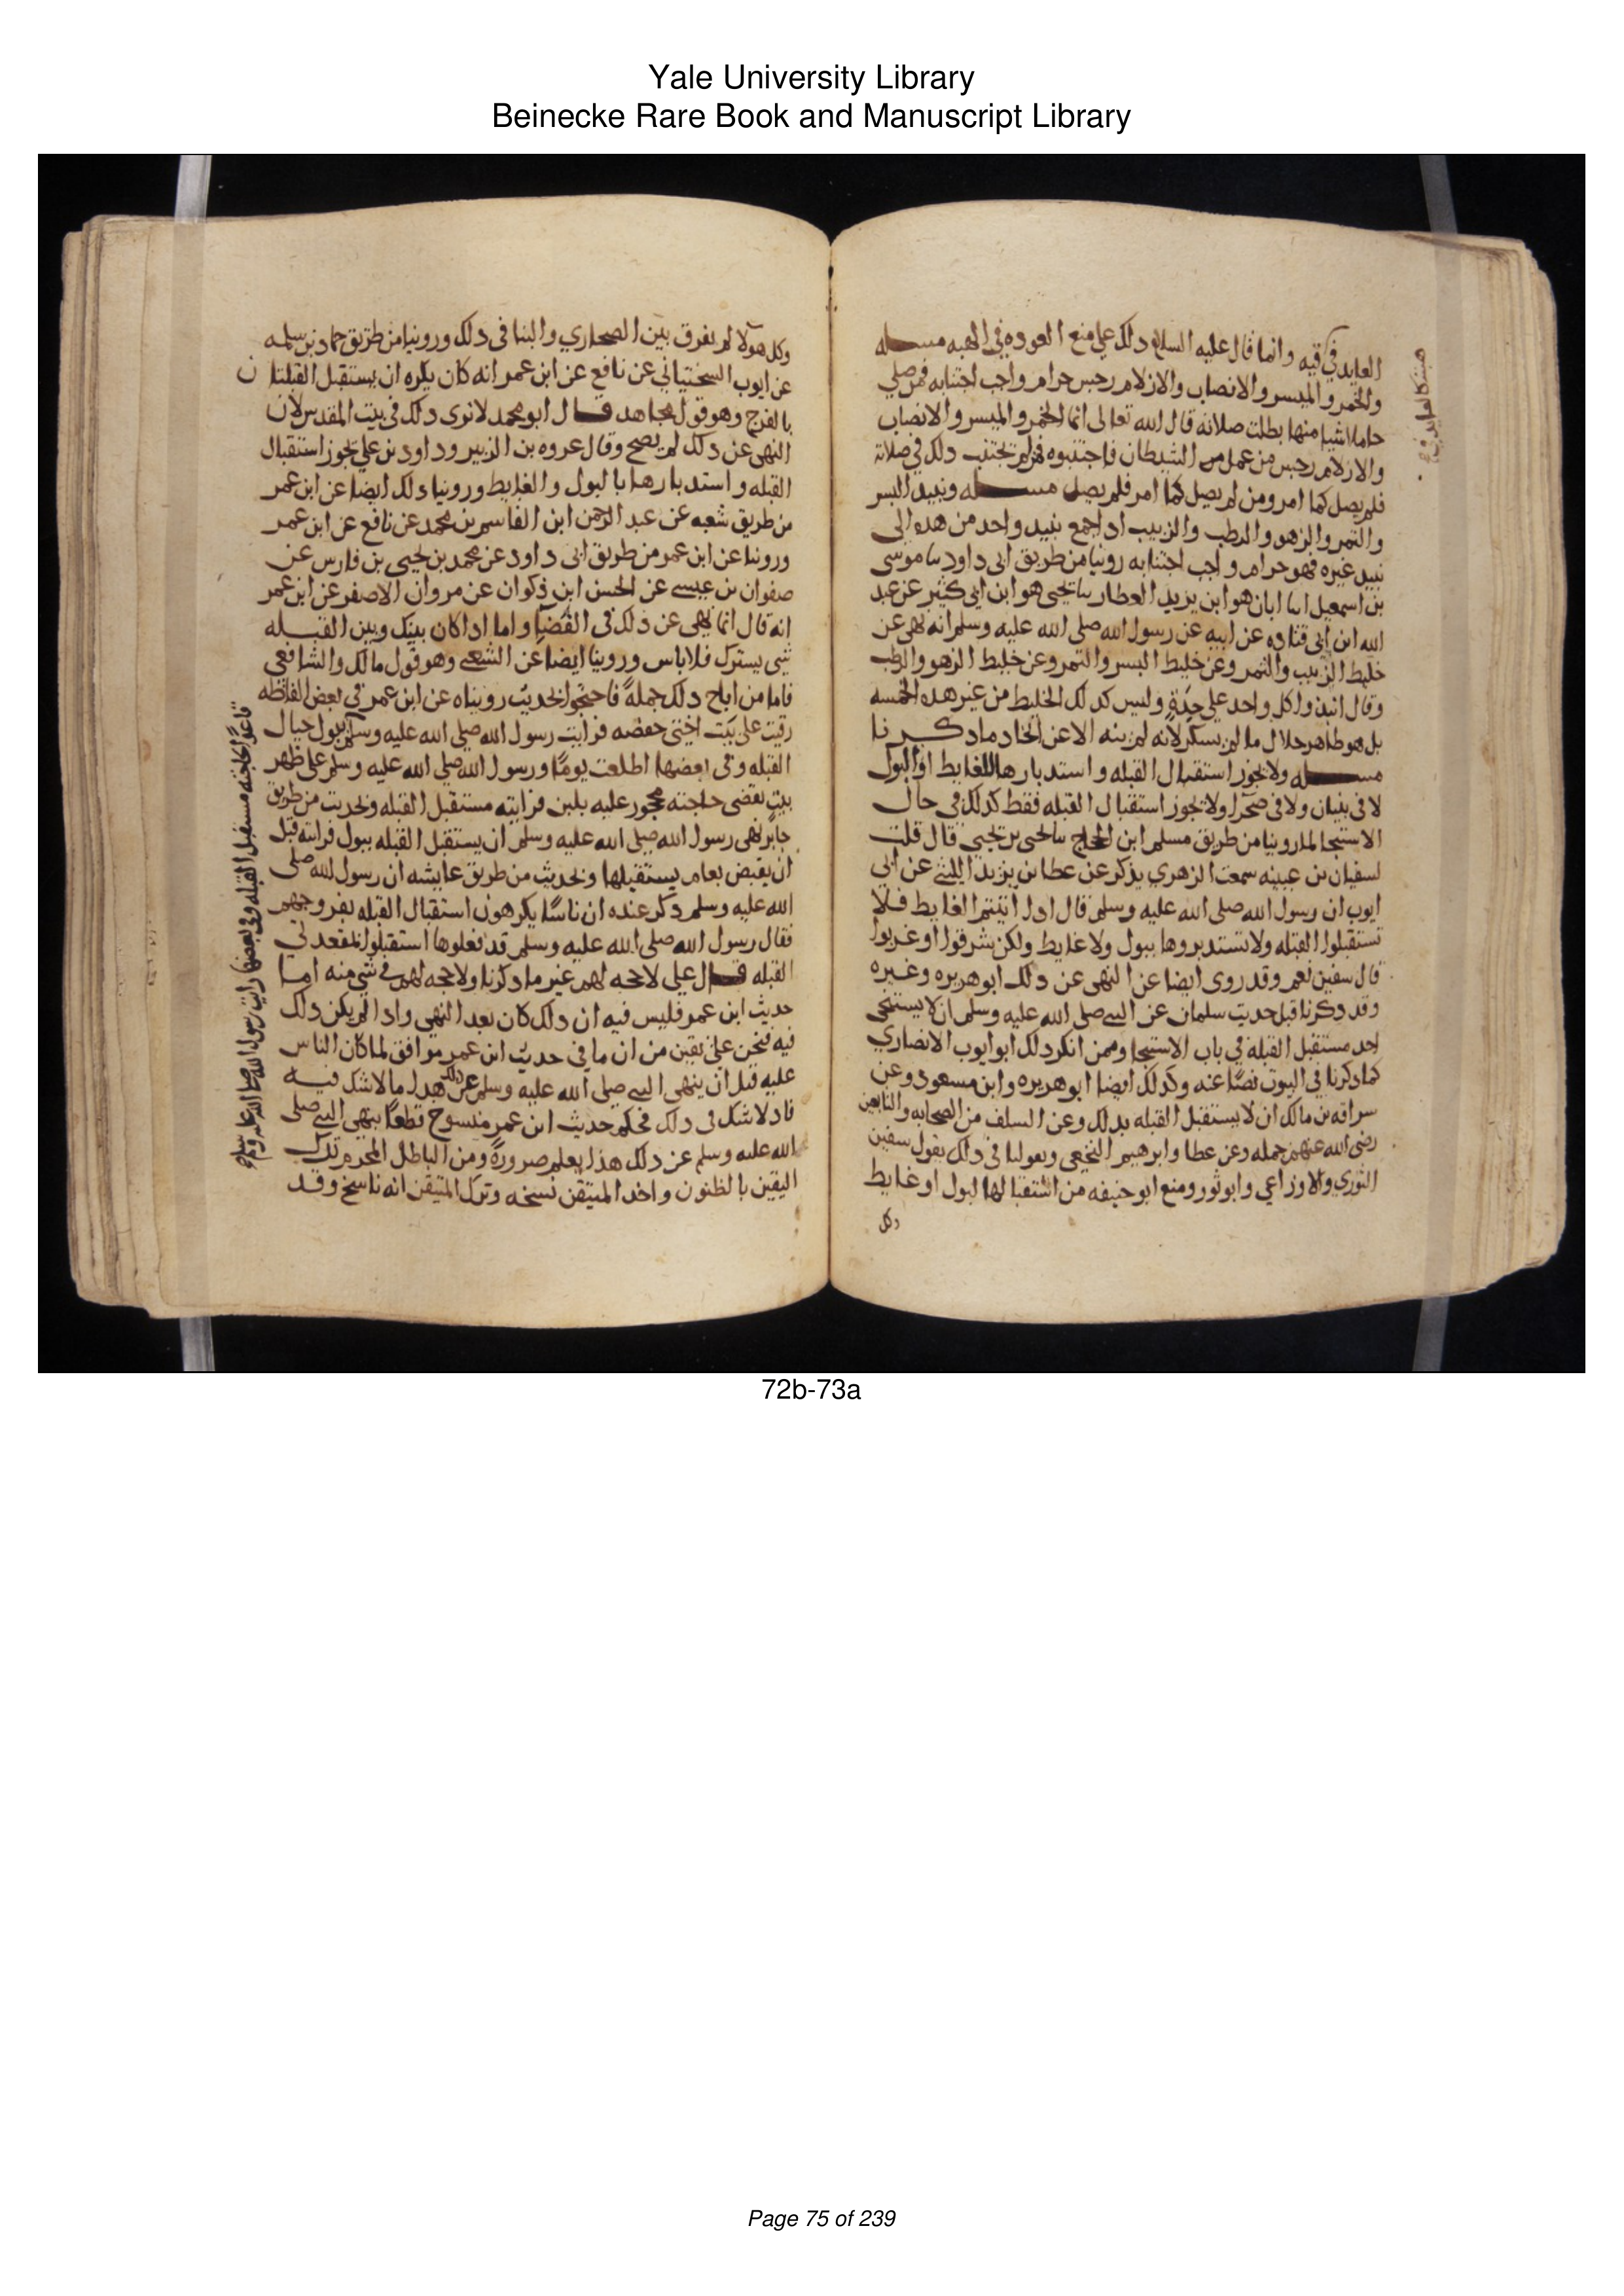 Yale University Library
Beinecke Rare Book and Manuscript Library
العايد في قيه وانما قال عليه السلم دلك علي منع العوده في الهبه مسله
والخمر والميسر والانصاب والازلام رجس حرام واجب اجتنابه فمن صلي
حاملا شيا منها بطلت صلاته قال الله تعالى انما الخمر والميسر والانصاب
والازلام رجس من عمل الشيطان فاجتنبوه فمن لم يجتنب دلك في صلاته
فلم يصل كما امر ومن لم يصل كما امر فلم يصل مسله ونبيد البسر
والتمر والزهو والرطب والزبيب ادا جمع نبيد واحد من هده الى
نبيد غيره فهو حرام واجب اجتنابه روينا من طريق ابى داود نا موسى
بن اسمعيل انا ابان هو ابن يزيد العطار نا يحيى هو ابن ابي كثير عن عبد
الله ابن ابى قتاده عن ابيه عن رسول الله صلى الله عليه وسلم انه نهى عن
خليط الزبيب والتمر وعن خليط البسر والتمر وعن خليط الزهو والرطب
وقال انبدوا كل واحد علي حدة وليس كدلك الخليط من غير هده الخمسه
بل هو طاهر حلال ما لم يسكر لانه لم ينه الا عن اتخاد ما دكرنا
مسله ولا يجوز استقبال القبله واستدبارها للغايط او البول
لا في بنيان ولا فى صحرا ولا يجوز استقبال القبله فقط كدلك في حال
الاستنجا لما روينا من طريق مسلم ابن الحجاج نا يحيى بن يحيي قال قلت
لسفيان بن عيينه سمعت الزهري يذكر عن عطا بن يزيد الليثي عن ابى
ايوب ان رسول الله صلى الله عليه وسلم قال ادا اتيتم الغايط فلا
تستقبلوا القبله ولا تستدبروها ببول ولا غايط ولكن شرقوا او غربوا
قال سفين نعم وقد روى ايضا عن النهى عن دلك ابو هريره وغيره
وقد دكرنا قبل حديث سلمان عن النبي صلى الله عليه وسلم ان لا يستنجى
احد مستقبل القبله في باب الاستنجا وممن انكر دلك ابو ايوب الانصاري
كما دكرنا في البيوت نصا عنه وكدلك ايضا ابو هريره وابن مسعود وعن
سراقه بن مالك ان لا يستقبل القبله بدلك وعن السلف من الصحابه والتابعين
رضى الله عنهم جمله وعن عطا وابرهيم النخعي وبقولنا فى دلك يقول سفين
الثوري والاوزاعي وابو ثور ومنع ابو حنيفه من استقبالها لبول او غايط
وكل
وكل هولا لم يفرق بين الصحاري والبنا فى دلك وروينا من طريق حماد بن سلمه
عن ايوب السختياني عن نافع عن ابن عمر انه كان يكره ان يستقبل القبلتان
بالفرج وهو قول مجاهد قال ابو محمد لا نرى دلك فى بيت المقدس لان
النهى عن دلك لم يصح وقال عروه بن الزبير وداود بن علي يجوز استقبال
القبله واستدبارها بالبول والغايط وروينا دلك ايضا عن ابن عمر
من طريق شعبه عن عبد الرحمن ابن القاسم بن محمد عن نافع عن ابن عمر
وروينا عن ابن عمر من طريق ابى داود عن محمد بن يحيى بن فارس عن
صفوان بن عيسى عن الحسن ابن ذكوان عن مروان الاصفر عن ابن عمر
انه قال انما نهي عن دلك فى الفضا واما ادا كان بينك وبين القبله
شى يسترك فلا باس وروينا ايضا عن الشعبي وهو قول مالك والشافعي
فاما من اباح دلك جملة فاحتجوا بحديث رويناه عن ابن عمر في بعض الفاظه
رقيت على بيت اختى حفصه فرايت رسول الله صلى الله عليه وسلم يبول حيال
القبله وفى بعضها اطلعت يوما ورسول الله صلى الله عليه وسلم على ظهر
بيت يقضى حاجته محجور عليه بلبن فرايته مستقبل القبله وبحديث من طريق
جابر نهى رسول الله صلى الله عليه وسلم ان يستقبل القبله ببول فرايته قبل
ان يقبض بعام يستقبلها وبحديث من طريق عايشه ان رسول الله صلى
الله عليه وسلم دكر عنده ان ناسا يكرهون استقبال القبله بفروجهم
فقال رسول الله صلى الله عليه وسلم قد فعلوها استقبلوا بمقعدتي
القبله قال علي لا حجه لهم غير ما دكرنا ولا حجه لهم في شي منه اما
حديث ابن عمر فليس فيه ان دلك كان بعد النهي وادا لم يكن دلك
فيه فنحن على يقين من ان ما فى حديث ابن عمر موافق لما كان الناس
عليه قبل ان ينهى النبي صلى الله عليه وسلم عن دلك هدا ما لا شك فيه
فاد لا شك فى دلك فحكم حديث ابن عمر منسوخ قطعا بنهي النبي صلى
الله عليه وسلم عن دلك هذا يعلم ضرورة ومن الباطل المحرم ترك
اليقين بالظنون واخد المتيقن نسخه وترك المتيقن انه ناسخ وقد
قاعدا لحاجته مستقبل القبله وفى بعضها رايت رسول الله صلى الله عليه وسلم
72b-73a
Page 75 of 239